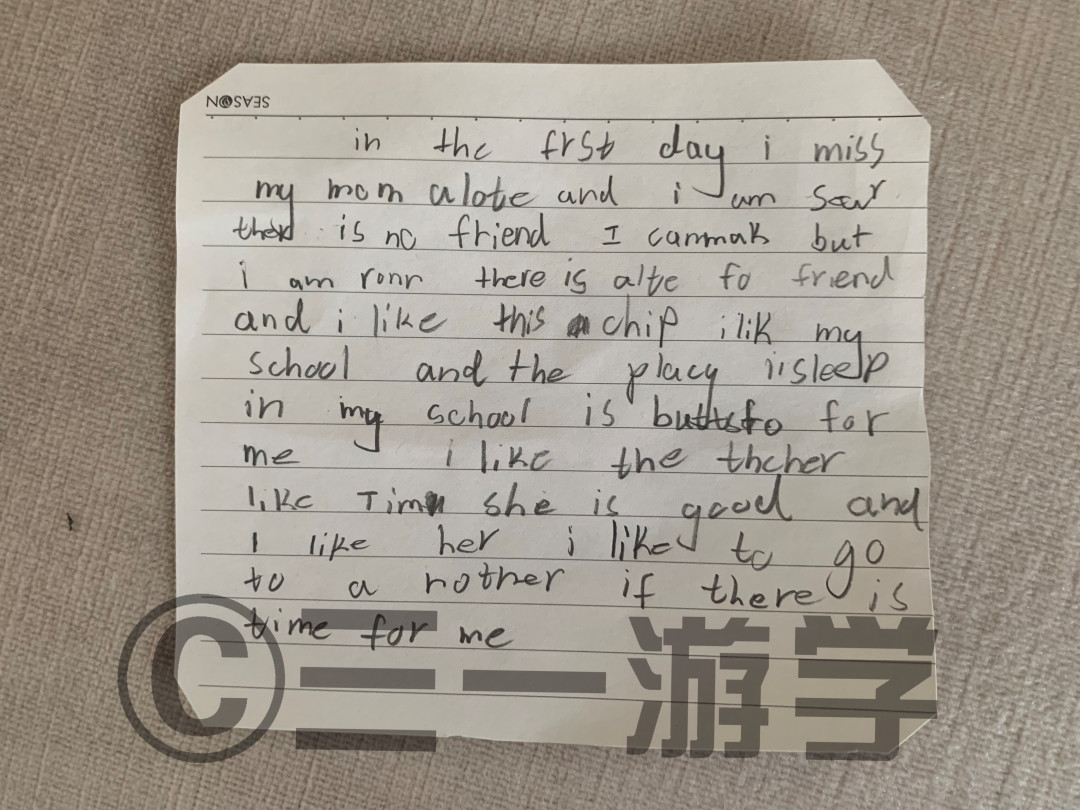 SEASON
in the frst day i miss
my mom alote and i am scar
is no friend I canmak but
i am ronn there is alte fo friend
and i like this chip i lik my
school and the placy i isleep
in my school is for
me i like the thcher
like Tim she is good and
I like her i like to go
to a nother if there is
time for me
©三一游学